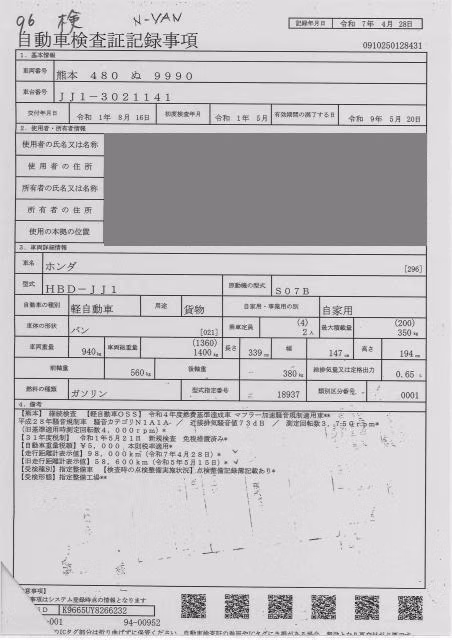 96 検 N-VAN
記録年月日 令和 7年 4月 28日
自動車検査証記録事項
0910250128431
1. 基本情報
車両番号 熊本 480 ぬ 9990
車台番号 JJ1-3021141
交付年月日 令和 1年 8月 16日 初度検査年月 令和 1年 5月 有効期間の満了する日 令和 9年 5月 20日
2. 使用者・所有者情報
使用者の氏名又は名称
使用者の住所
所有者の氏名又は名称
所有者の住所
使用の本拠の位置
3. 車両詳細情報
車名 ホンダ [296]
型式 HBD-JJ1 原動機の型式 S07B
自動車の種別 軽自動車 用途 貨物 自家用・事業用の別 自家用
車体の形状 バン [021] 乗車定員 (4) 2人 最大積載量 (200) 350kg
車両重量 940kg 車両総重量 (1360) 1400kg 長さ 339cm 幅 147cm 高さ 194cm
前軸重 560kg 後軸重 380kg 総排気量又は定格出力 0.65L
燃料の種類 ガソリン 型式指定番号 18937 類別区分番号 0001
4. 備考
【熊本】 継続検査 【軽自動車OSS】 令和4年度燃費基準達成車 マフラー加速騒音規制適用車**
平成28年騒音規制車 騒音カテゴリN1A1A- / 近接排気騒音値73dB / 測定回転数3,750rpm*
(旧基準適用時測定回転数4,000rpm)*
【31年度税制】 令和1年5月21日 新規検査 免税措置済み*
【自動車重量税額】 ¥5,000 本則税率適用*
【走行距離計表示値】98,000km(令和7年4月28日)*
【旧走行距離計表示値】58,600km(令和5年5月15日)*
【受検種別】指定整備車 【検査時の点検整備実施状況】点検整備記録簿記載あり*
【受検形態】指定整備工場**
意事項】
事項はシステム登録時点の情報となります
ID K9665UY8266232
-001 94-00952